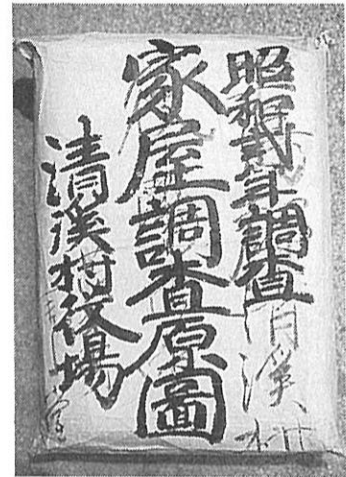 昭和弐年調査
清溪村
家屋調査原圖
清溪村役場